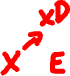 XD
X E